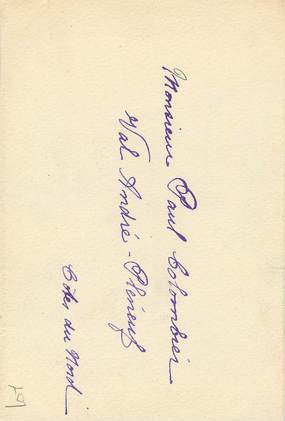 Monsieur Paul Colombier
Val André - Pléneuf
Côtes du Nord